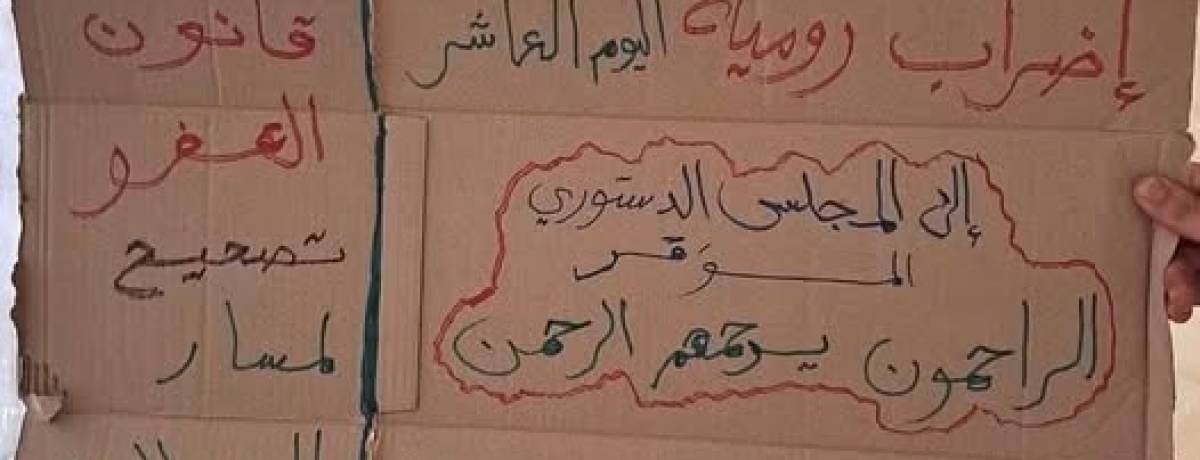 إضراب رومية اليوم العاشر
إلى المجلس الدستوري
الموَقر
الراحمون يرحمهم الرحمن
قانون
العفو
تصحيح
لمسار